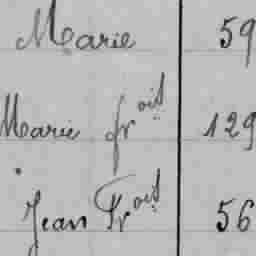 Marie 59
Marie frois 129
Jean Frois 56